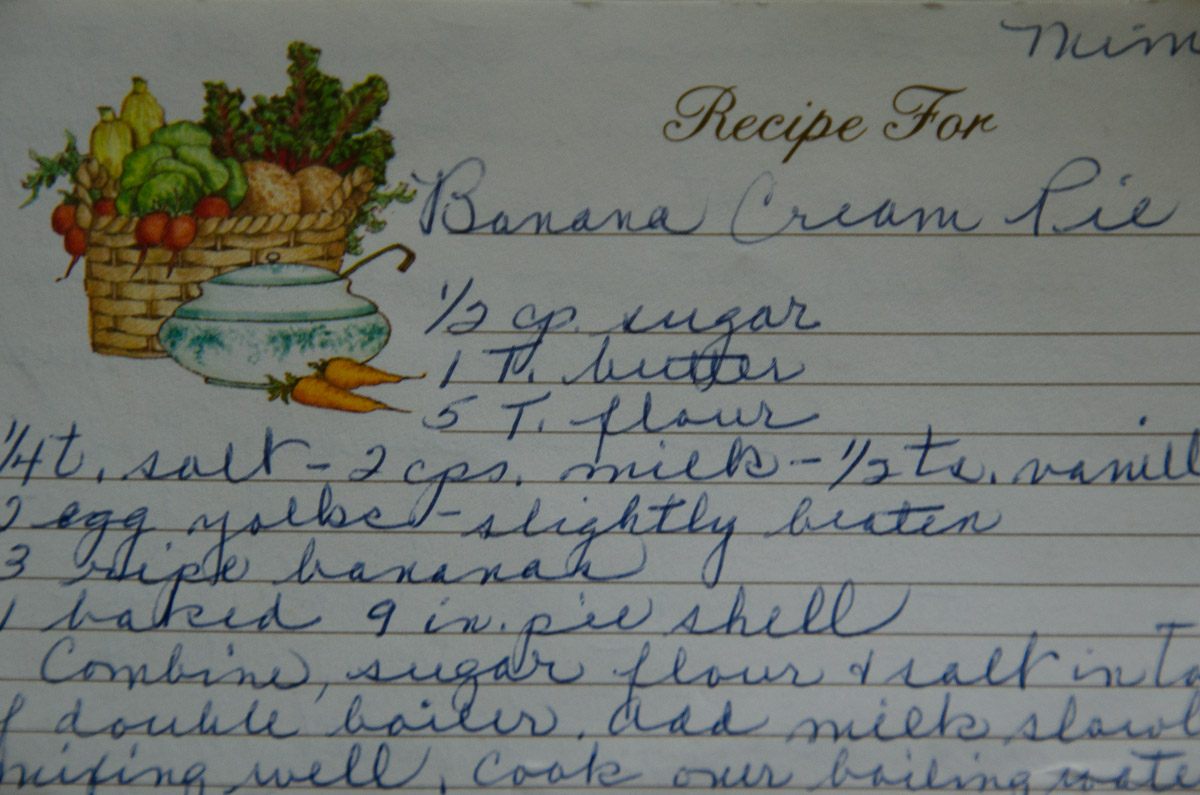 Mim
Recipe For
Banana Cream Pie
1/2 cp. sugar
1 T. butter
5 T. flour
1/4 t. salt - 2 cps. milk - 1/2 ts. vanill
2 egg yolks - slightly beaten
3 ripe bananas
1 baked 9 in. pie shell
Combine, sugar flour & salt in to
f double boiler. Add milk slowl
mixing well, Cook over boiling wate